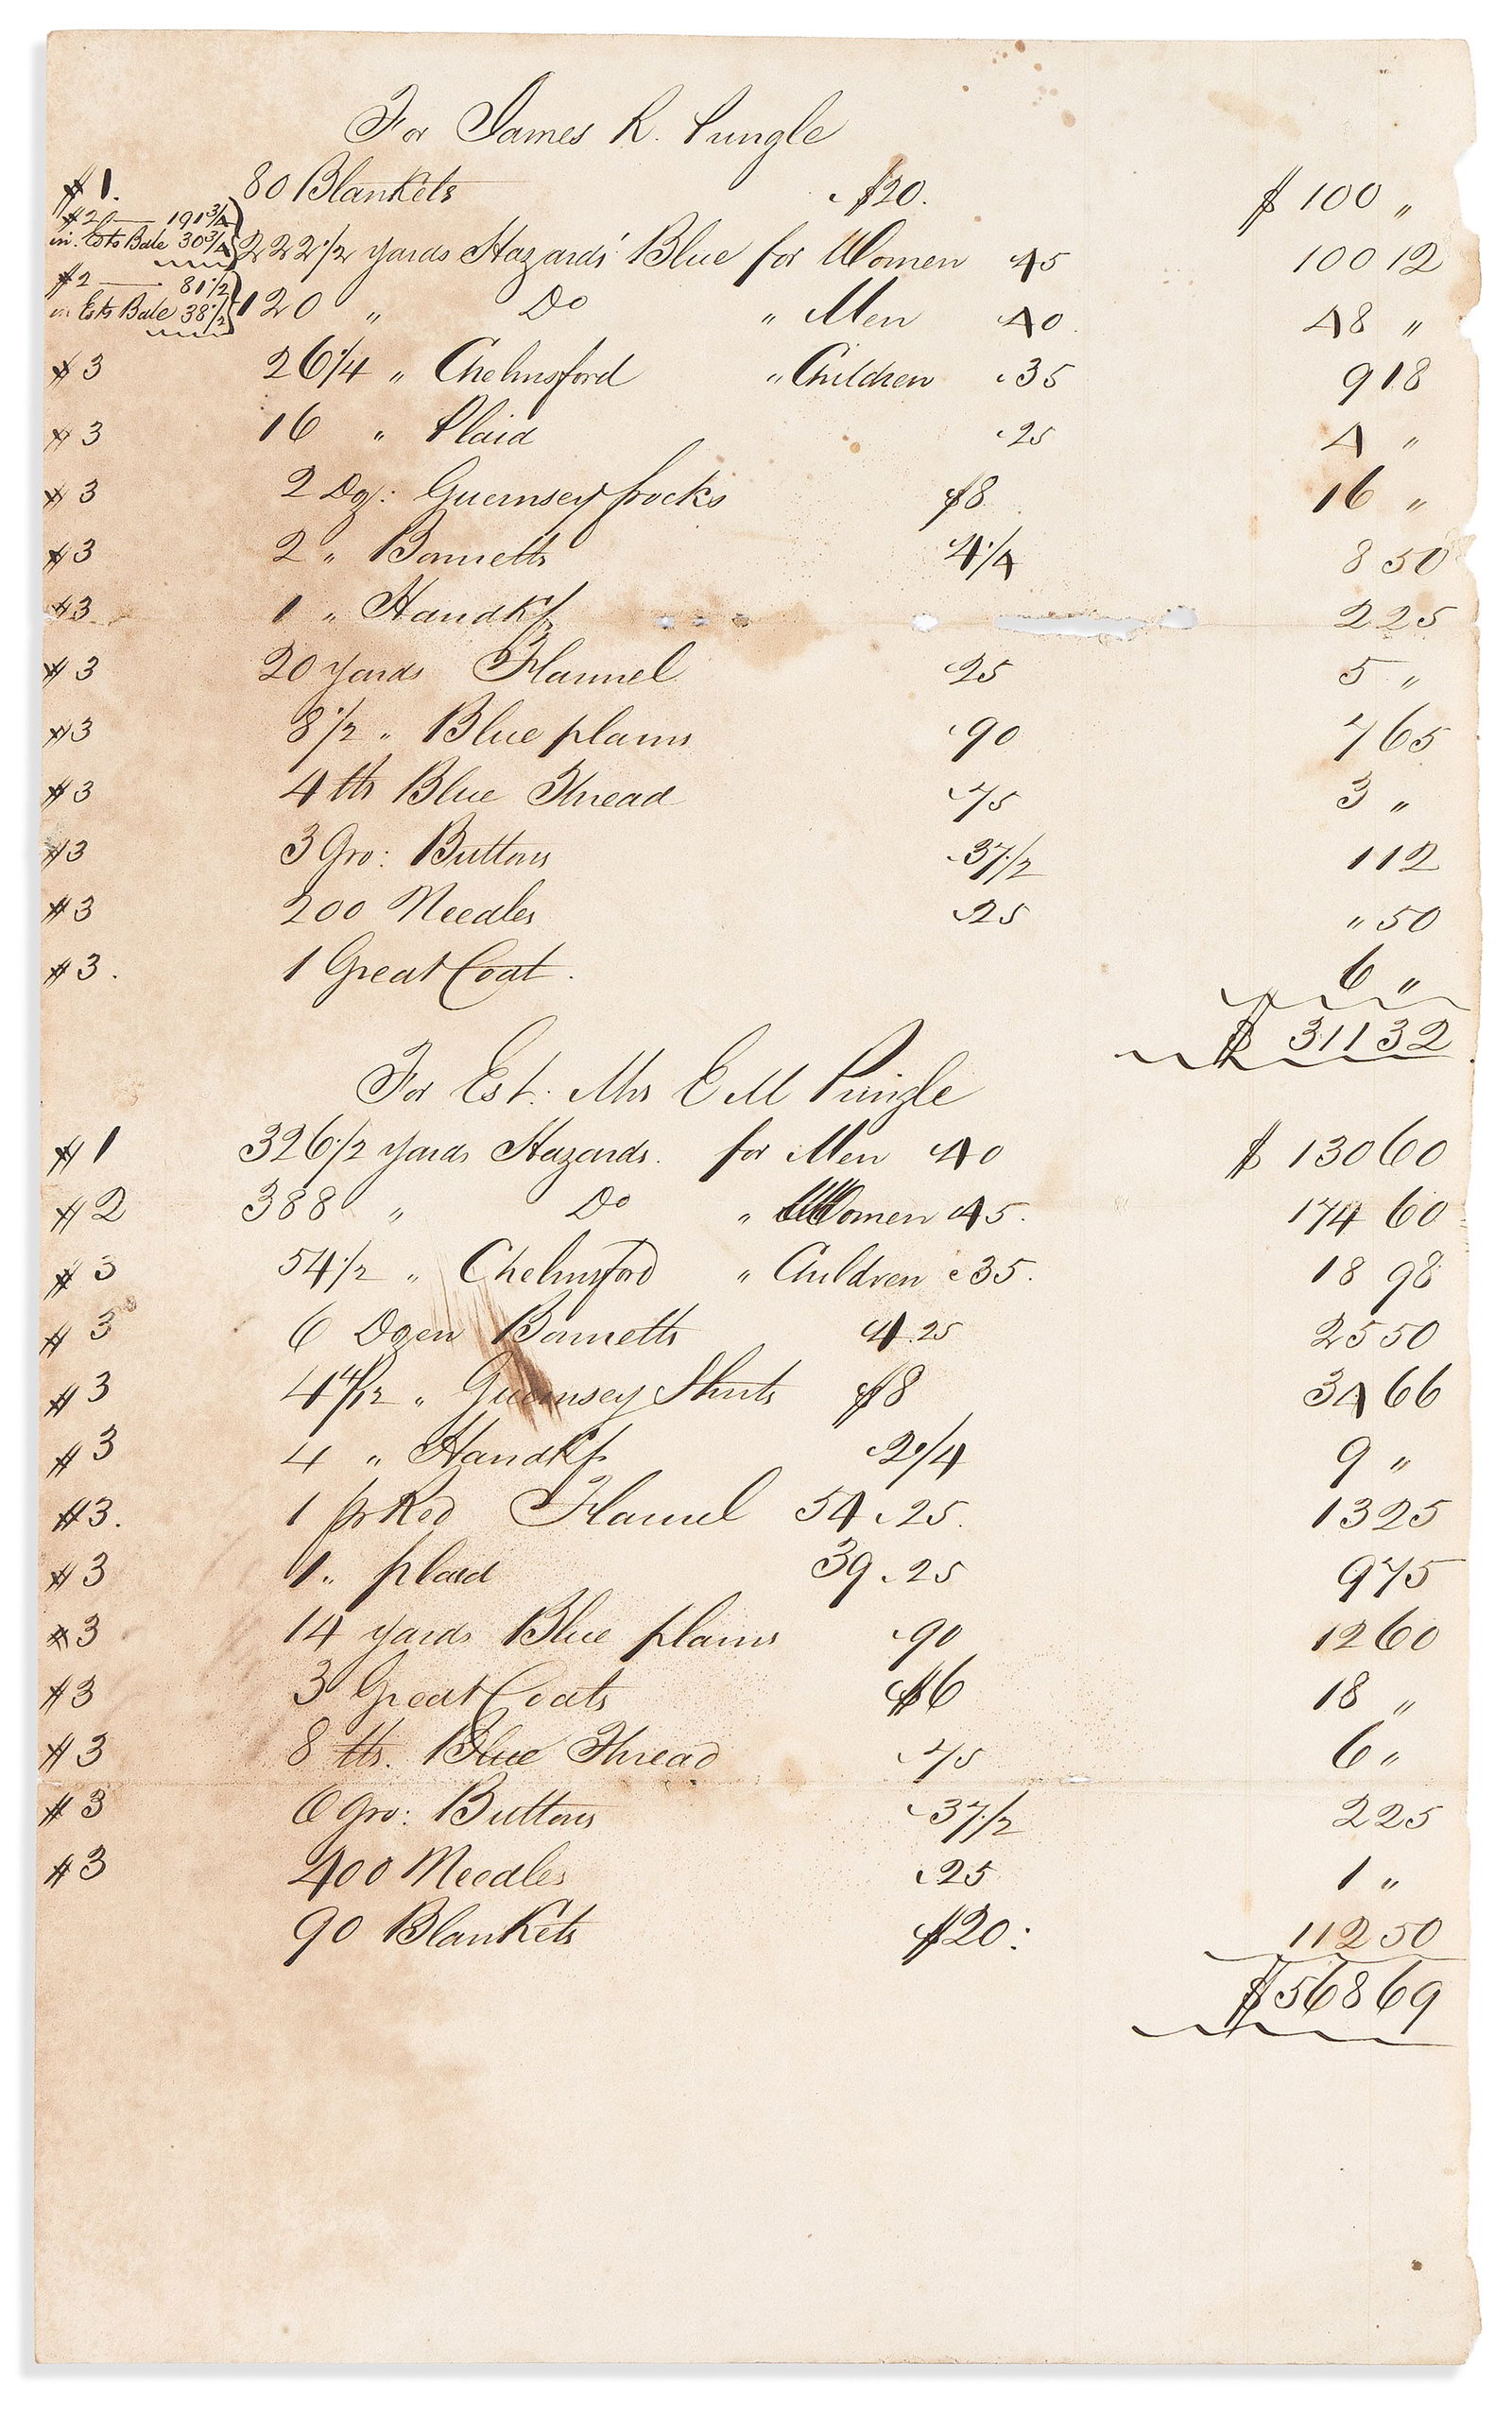 For James R. Pringle
#1. 80 Blankets $20. $ 100 "
#2 — 191 3/4
in Ests Bale 30 3/4 222 1/2 yards Hazards' Blue for Women 45 100 12
#2 — 81 1/2
in Ests Bale 38 1/2 120 " Do " Men 40. 48 "
#3 26 1/4 " Chelmsford " Children 35 9 18
#3 16 " Plaid 25 4 "
#3 2 Dz: Guernsey frocks $8 16 "
#3 2 " Bonnetts 4 1/4 8 50
#3 1 " Handkf 2 25
#3 20 yards Flannel 25 5 "
#3 8 1/2 " Blue plains 90 7 65
#3 4 lbs Blue Thread 75 3 "
#3 3 Gro: Buttons 37 1/2 1 12
#3 200 Needles 25 " 50
#3. 1 Great Coat. 6 "
$ 311 32
For Est. Mrs E M Pringle
#1 326 1/2 yards Hazards. for Men 40 $ 130 60
#2 388 " Do " Women 45. 174 60
#3 54 1/2 " Chelmsford " Children 35. 18 98
#3 6 Dozen Bonnetts 4.25 25 50
#3 4 4/12 " Guernsey Shirts $8 34 66
#3 4 " Handkfs 2 1/4 9 "
#3. 1 ps Red Flannel 54 25. 13 25
#3 1 " plaid 39 25 9 75
#3 14 yards Blue plains 90 12 60
#3 3 Great Coats $6 18 "
#3 8 lbs. Blue Thread 75 6 "
#3 6 Gro: Buttons 37 1/2 2 25
#3 400 Needles 25 1 "
90 Blankets $20: 112 50
$568 69